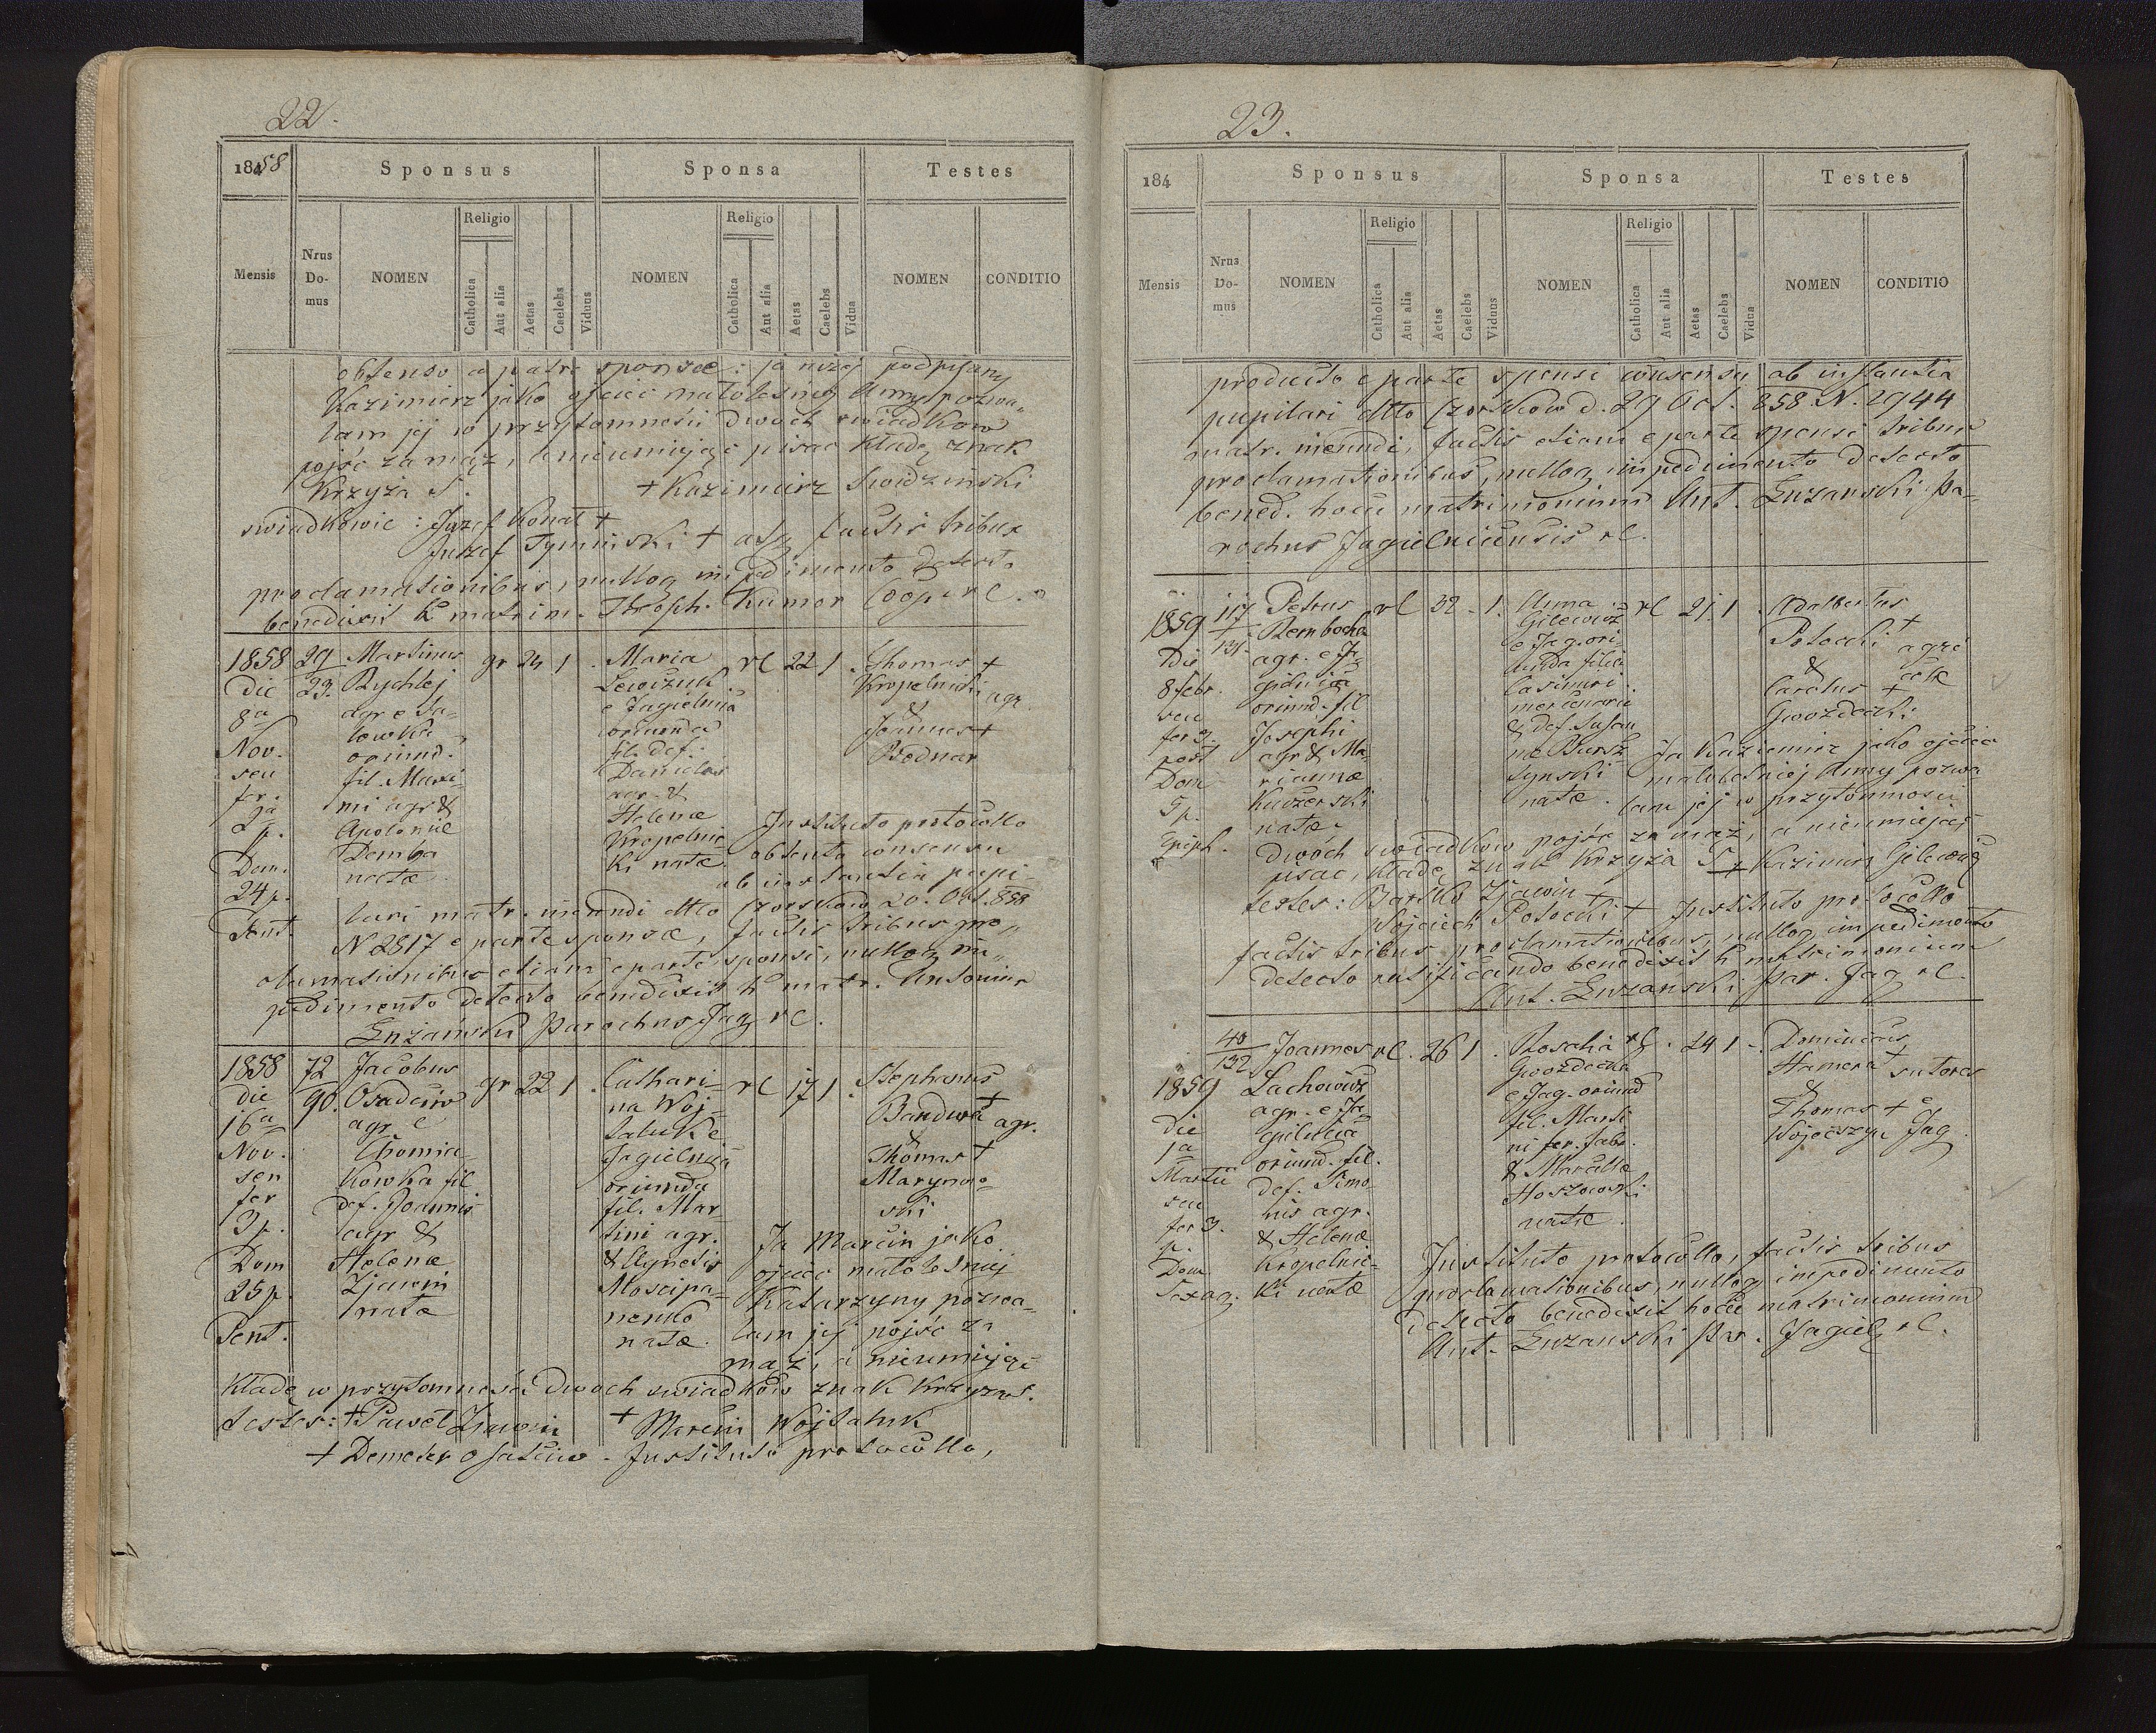 22.
1858
Sponsus
Sponsa
Testes
Mensis
Nrus Do- mus
NOMEN
Religio
Catholica
Aut alia
Aetas
Caelebs
Viduus
NOMEN
Religio
Catholica
Aut alia
Aetas
Caelebs
Vidua
NOMEN
CONDITIO
obtento a patre sponsae: ja niżej podpisany
Kazimierz jako ojciec małoletniej Anny pozwa-
lam jej w przytomności dwoch swiadkow
pojść za mąż, a nieumiejąc pisac kładę znak
Krzyża S. + Kazimierz Swidzinski
swiadkowie: Juzef Konat +
Juzef Tyminski + atq factis tribus
proclamationibus, nulloq impedimento detecto
benedixit h matrim. Theoph. Kumor Cooper rl.
1858
die
8a
Nov.
seu
fer.
2a
p.
Dom.
24 p.
Pent.
29
23.
Martinus
Rychlej
agr e Sa-
lowka
oriund.
fil. Maxi-
mi agr &
Apoloniae
Demba
natae
gr 24 1 .
Maria
Lewczuk
e Jagielnica
oriunda
fil. def.
Danielis
agr. &
Helenae
Kropelnic-
ki natae.
rl 22 1 .
Thomas +
Kropelnicki
agr.
&
Joannes +
Bodnar
Instituto protocollo
obtento consensu
ab instantia pupi-
lari matr. ineundi dtto Czorskow 20. Oct. 858
N 2817 e parte sponsae, factis tribus pro-
clamationibus etiam e parte sponsi, nulloq im-
pedimento detecto benedixit h matr. Antonius
Luzanski Parochus Jag rl.
1858
die
16a
Nov.
seu
fer
3 p.
Dom
25 p.
Pent.
72
90.
Jacobus
Osadciw
agr e
Chomia-
kowka fil
def. Joannis
agr &
Helenae
Zjawin
natae
gr 22 1 .
Cathari-
na Woj-
taluk e
Jagielnica
oriunda
fil. Mar-
tini agr.
& Agnetis
Moscipa-
nenko
natae.
rl 17 1 .
Stephanus
Bandura +
agr.
&
Thomas +
Marynow-
ski
Ja Marcin jako
ojciec małoletniej
Katarzyny pozwa-
lam jej pojść za
mąż, a nieumiejąc
kładę w przytomności dwoch swiadków znak krzyza S.
testes: + Paweł Zjawin + Marcin Wojtaluk
+ Demeter Osatciw - Instituto protocollo,
23.
184
Sponsus
Sponsa
Testes
Mensis
Nrus Do- mus
NOMEN
Religio
Catholica
Aut alia
Aetas
Caelebs
Viduus
NOMEN
Religio
Catholica
Aut alia
Aetas
Caelebs
Vidua
NOMEN
CONDITIO
producto e parte sponsi consensu ab instantia
pupilari dtto Czorskow d. 29 Oct. 858 N. 2944
matr. ineundi, factis etiam e parte sponsi tribus
proclamationibus, nulloq impedimento detecto
bened. hocce matrimonium Ant. Luzanski Pa-
rochus Jagielnicensis rl.
1859
die
8 febr.
seu
fer 3.
post
Dom
5 p.
Epiph.
117
131.
Petrus
Rembocha
agr. e Ja-
gielnica
oriund. fil
Josephi
agr & Ma-
riannae
Kuczerski
natae.
rl 32 - 1.
Anna
Gilewicz
e Jag. ori-
unda filia
Casimiri
mercenarii
& def. Susan
nae Bursz-
tynski
natae.
rl 21. 1
Adalbertus
Potocki +
agri
&
colae
Carolus +
Gwozdecki
Ja Kazimierz jako ojciec
małoletniej Anny pozwa-
lam jej w przytomności
dwóch swiadków pojść za mąż, a nieumiejąc
pisac, kładę znak Krzyża S + Kazimirz Gilewicz
testes: Bartko Zjawin +
Wojciech Potocki + Instituto protocollo
factis tribus proclamationibus, nulloq impedimento
detecto ratificando benedixit h matrimonium
Ant. Luzanski Par. Jag rl.
40
132
1859
die
1a
Martii
seu
fer 3.
p.
Dom
Sexag.
Joannes
Lachowicz
agr. e Ja-
gielnica
oriund. fil.
def. Simo-
nis agr.
& Helenae
Kropelnic-
ki natae
rl . 26 1 .
Rosalia
Gwozdecka
e Jag. oriund
fil. Marti
ni fer. fabr.
& Marcellae
Hoszowski
natae.
rl . 24 1 -.
Dominicus
Hamera +
sutores
&
Thomas + e
Wojciszyn Jag.
Instituto protocollo, factis tribus
proclamationibus, nulloq impedimento
detecto benedixit hocce matrimonium
Ant. Luzanski Par. Jagiel rl.